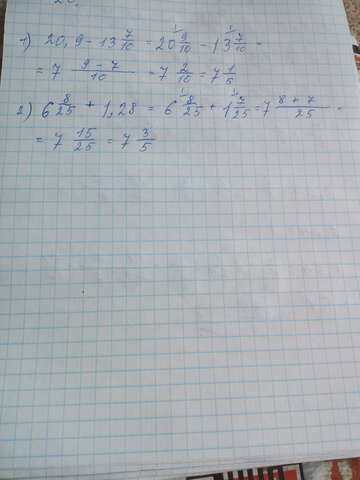 20,
1) 20,9 - 13 7/10 = 20 9/10 - 13 7/10 =
= 7 (9 - 7)/10 = 7 2/10 = 7 1/5
2) 6 8/25 + 1,28 = 6 8/25 + 1 7/25 = 7 (8 + 7)/25 =
= 7 15/25 = 7 3/5